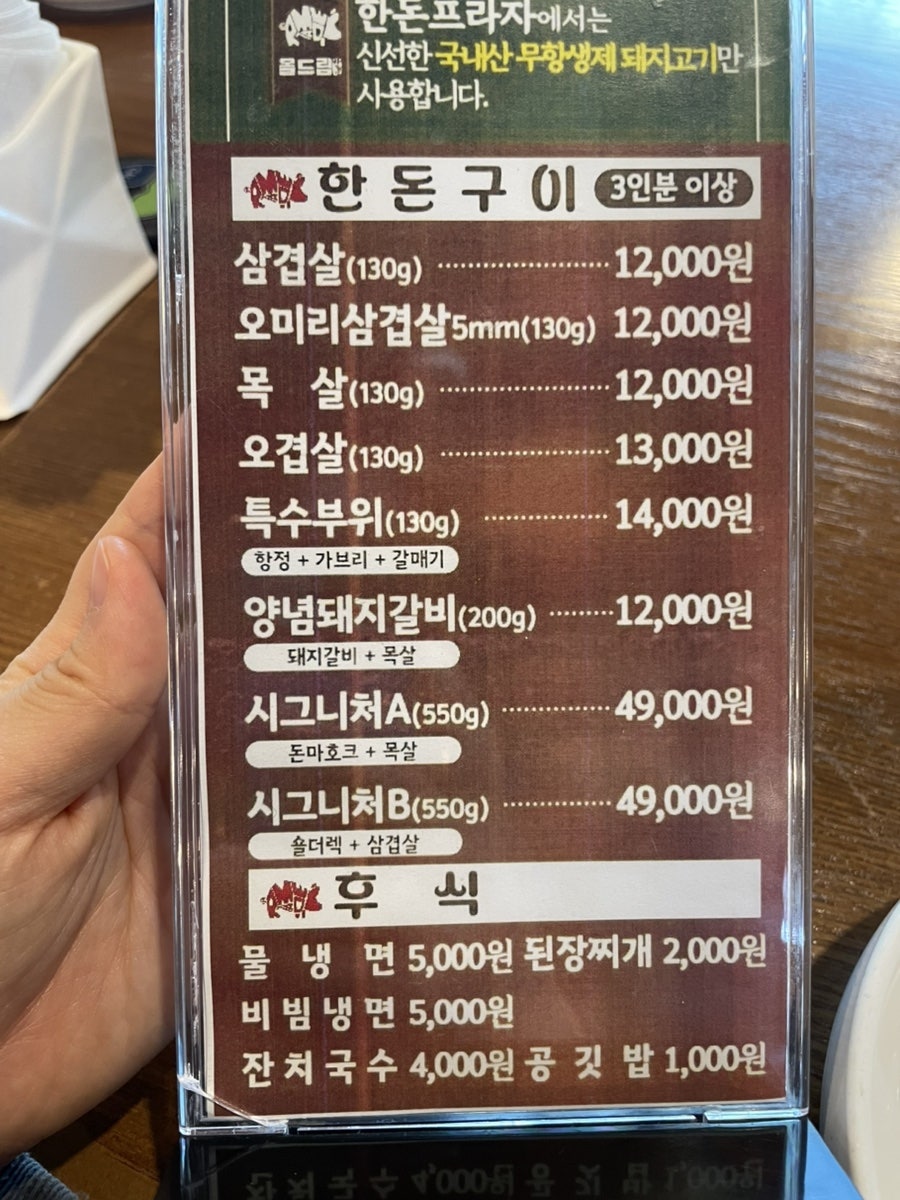 한돈프라자에서는
몸드림 신선한 국내산 무항생제 돼지고기만
사용합니다.
한돈구이 3인분 이상
삼겹살(130g) 12,000원
오미리삼겹살5mm(130g) 12,000원
목 살(130g) 12,000원
오겹살(130g) 13,000원
특수부위(130g) 14,000원
항정 + 가브리 + 갈매기
양념돼지갈비(200g) 12,000원
돼지갈비 + 목살
시그니처A(550g) 49,000원
돈마호크 + 목살
시그니처B(550g) 49,000원
숄더렉 + 삼겹살
후 식
물 냉 면 5,000원 된장찌개 2,000원
비빔냉면 5,000원
잔치국수 4,000원 공 깃 밥 1,000원